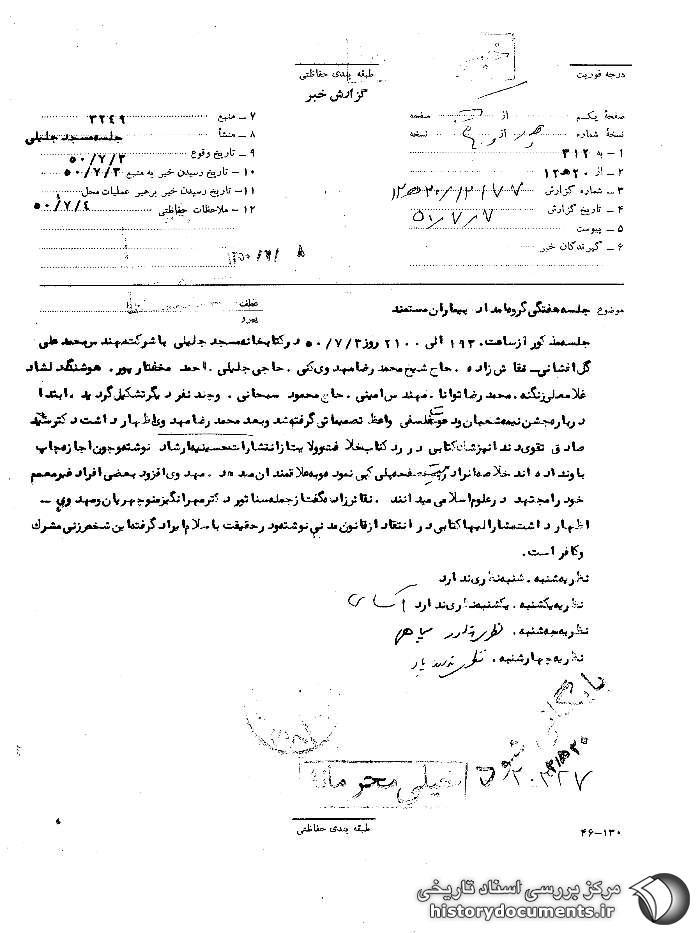 درجه فوریت
طبقه بندی حفاظتی
گزارش خبر
صفحهٔ یکم از صفحه
نسخهٔ شماره از نسخه
۱ – به ۳۱۲
۲ – از ۲۰ ه‍ ۱۲
۳ – شماره گزارش
۴ – تاریخ گزارش ۵۰/۷/۷
۵ – پیوست
۶ – گیرندگان خبر
۷ – منبع ۳۲۴۹
۸ – منشأ جلسه مسجد جلیلی
۹ – تاریخ وقوع ۵۰/۷/۳
۱۰ – تاریخ رسیدن خبر به منبع ۵۰/۷/۳
۱۱ – تاریخ رسیدن خبر برهبر عملیات محل ۵۰/۷/۴
۱۲ – ملاحظات حفاظتی
موضوع جلسه هفتگی گروه امداد بیماران مستمند
عطف
پیرو
جلسه مذکور از ساعت ۱۹۳۰ الی ۲۱۰۰ روز ۵۰/۷/۳ در کتابخانه مسجد جلیلی با شرکت مهندس محمد علی
گل افشانی – نقاش زاده . حاج شیخ محمد رضا مهدوی کنی . حاجی جلیلی . احمد . هوشنگ دلشاد
غلامعلی زنگنه . محمد رضا توانا . مهندس امینی . حاج محمود سبحانی . و چند نفر دیگر تشکیل گردید . ابتدا
درباره جشن نیمه شعبان و دعوت فلسفی واعظ تصمیماتی گرفته شد و بعد محمد رضا مهدوی اظهار داشت دکتر سید
صادق تقوی دندانپزشک کتابی در رد کتاب خلافت و ولایت از انتشارات حسینیه ارشاد نوشته و چون اجازه چاپ
باو نداده اند خلاصه آنرا در صفحه پلی کپی نموده و به علاقمندان میدهد . مهدوی افزود بعضی افراد غیر معمم
خود را مجتهد در علوم اسلامی میدانند . نقاش زاده گفت از جمله سناتور دکتر مهرانگیز منوچهریان و مهدوی –
اظهار داشت مشارالیها کتابی در انتقاد از قانون مدنی نوشته و در حقیقت باسلام ایراد گرفته این شخص زنی مشرک
و کافر است .
نظریه شنبه . شنبه نظری ندارد
نظریه یکشنبه . یکشنبه نظری ندارد
نظریه سه شنبه . نظری ندارد
نظریه چهارشنبه . نظری ندارد
بایگانی شود
۲۰۲۲۷
خیلی محرمانه
طبقه بندی حفاظتی
۴۶–۱۳۰
مرکز بررسی اسناد تاریخی
historydocuments.ir